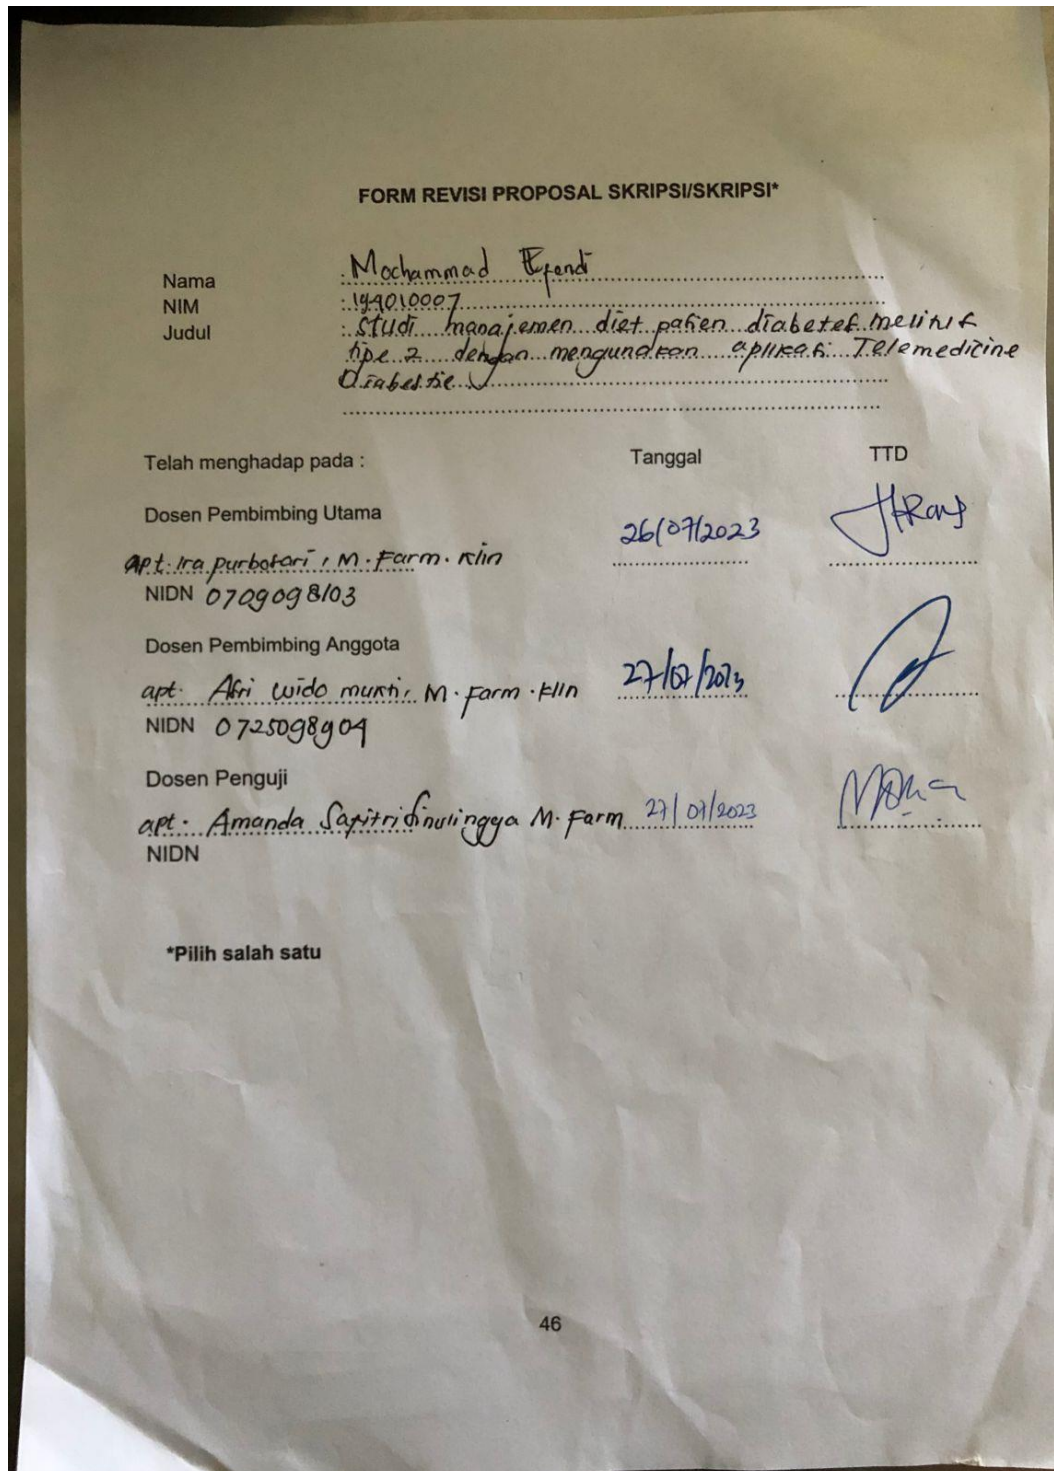 FORM REVISI PROPOSAL SKRIPSI/SKRIPSI*
Nama : Mochammad Efendi
NIM : 194010007
Judul : Studi manajemen diet pasien diabetes melitus
tipe 2 dengan mengunakan aplikasi Telemedicine
Diabestie
Telah menghadap pada : Tanggal TTD
Dosen Pembimbing Utama
apt. Ira purbosari, M. Farm. Klin 26/07/2023
NIDN 0709098103
Dosen Pembimbing Anggota
apt. Afri wido mukti, M. Farm. Klin 27/07/2023
NIDN 0725098904
Dosen Penguji
apt. Amanda M. Farm 27/07/2023
NIDN
*Pilih salah satu
46